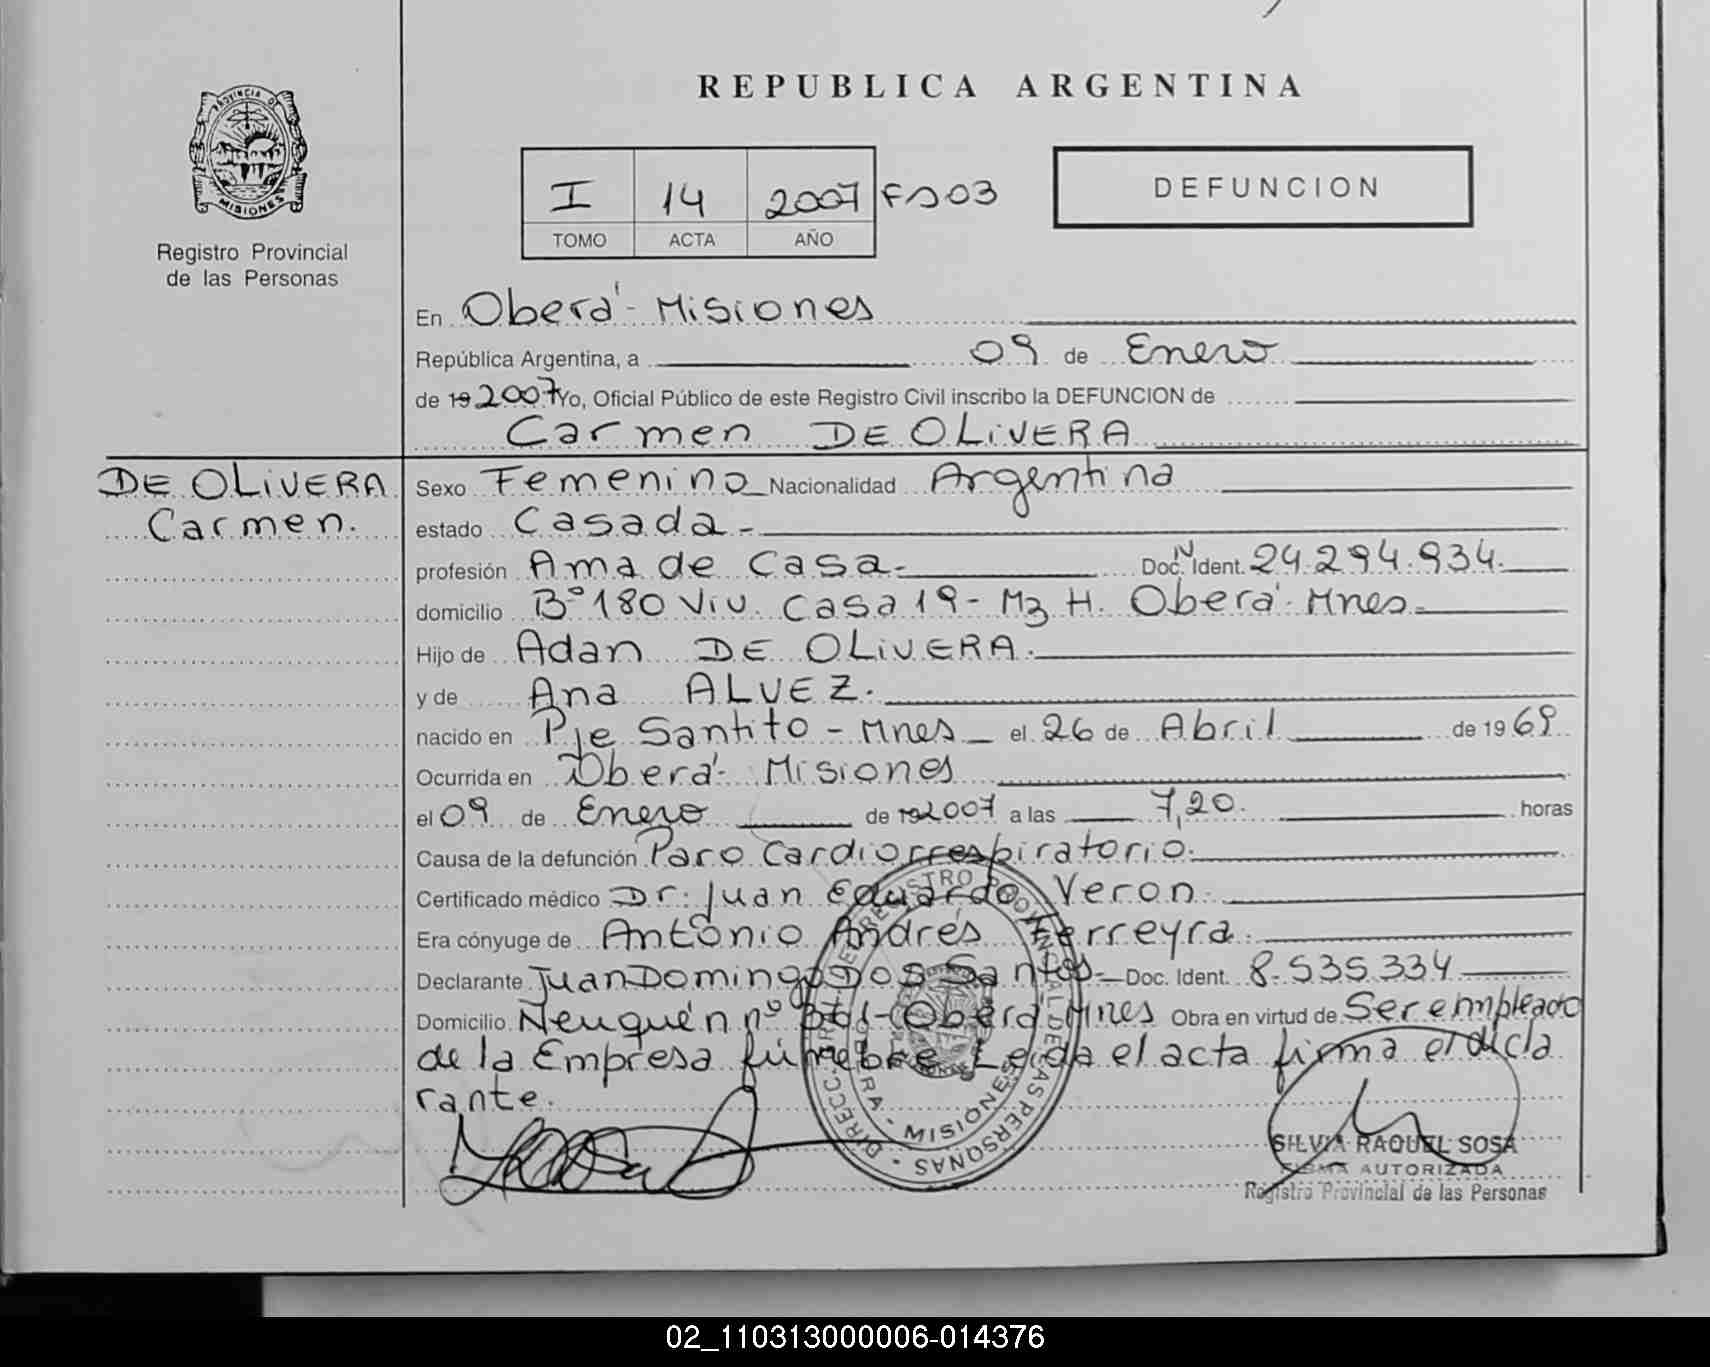 REPUBLICA ARGENTINA
PROVINCIA DE
MISIONES
Registro Provincial
de las Personas
I 14 2007 Fº 03
TOMO ACTA AÑO
DEFUNCION
En Oberá - Misiones
República Argentina, a 09 de Enero
de 19 2007 Yo, Oficial Público de este Registro Civil inscribo la DEFUNCION de
Carmen DE OLIVERA
DE OLIVERA
Carmen.
Sexo Femenino Nacionalidad Argentina
estado Casada -
profesión Ama de Casa - Doc. N Ident. 24.294.934.
domicilio Bº 180 Viv. Casa 19 - Mz H. Oberá - Mnes.
Hijo de Adan DE OLIVERA.
y de Ana ALVEZ.
nacido en Pje Santito - Mnes el 26 de Abril de 19 69
Ocurrida en Oberá - Misiones
el 09 de Enero de 19 2007 a las 7,20. horas
Causa de la defunción Paro Cardiorrespiratorio.
Certificado médico Dr: Juan Eduardo Veron.
Era cónyuge de Antonio Andrés Ferreyra.
Declarante Juan Domingo Dos Santos - Doc. Ident. 8.535.334
Domicilio Neuquén nº - Oberá Mnes Obra en virtud de Ser empleado
de la Empresa fúnebre Leida el acta firma el dicla
rante.
DIREC. GRAL. DE REGISTRO PROVINCIAL DE LAS PERSONAS
MISIONES
SILVIA RAQUEL SOSA
FIRMA AUTORIZADA
Registro Provincial de las Personas
02_110313000006-014376